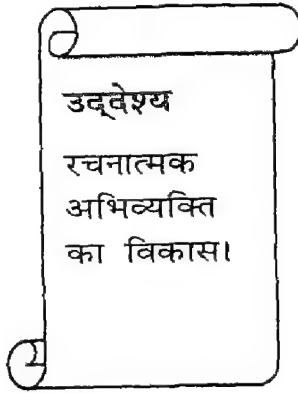 उद्‌देश्य
रचनात्मक
अभिव्यक्ति
का विकास।